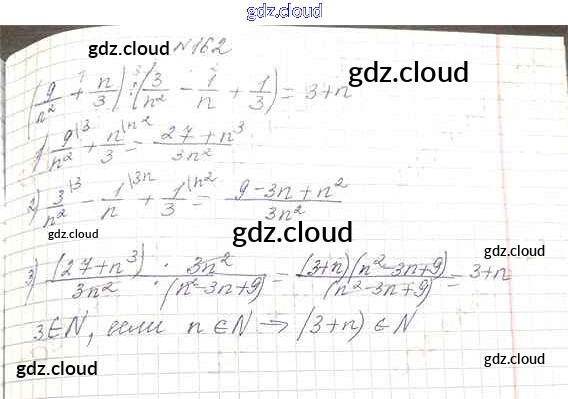 gdz.cloud
gdz.cloud
N 162
gdz.cloud
(9/n² + n/3) : (3/n² - 1/n + 1/3) = 3+n
gdz.cloud
1) 9|3/n² + n|n²/3 = 27+n³/3n²
2) 3|3/n² - 1|3n/n + 1|n²/3 = 9-3n+n²/3n²
gdz.cloud
gdz.cloud
3) (27+n³)/3n² · 3n²/(n²-3n+9) = (3+n)(n²-3n+9)/(n²-3n+9) = 3+n
gdz.cloud
3∈N, если n∈N → (3+n)∈N
gdz.cloud
gdz.cloud